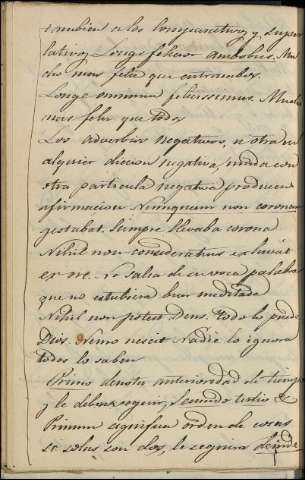 tambien a los comparativos, y super
lativos, Longe felicior ambobus. Mu
cho mas feliz que entrambos.
Longe omnium felicissimus. Mucho
mas feliz que todos
Los adverbios negativos, u otra cu
alquier diccion negativa, unida con
otra particula negativa producen
afirmacion Nunquam non coronam
gestabat. Siempre llevaba corona
Nihil non consideratum exibat
ex ore. No salia de su voca palabra
que no estubiera bien meditada
Nihil non potest Deus. Todo lo puede
Dios. Nemo nescit Nadie lo ignora
todos lo saben
Primo denota anterioridad de tiempo
y le deben seguir, secundo tertio &
Primum significa orden de cosas
si solas son dos, le seguira deinde